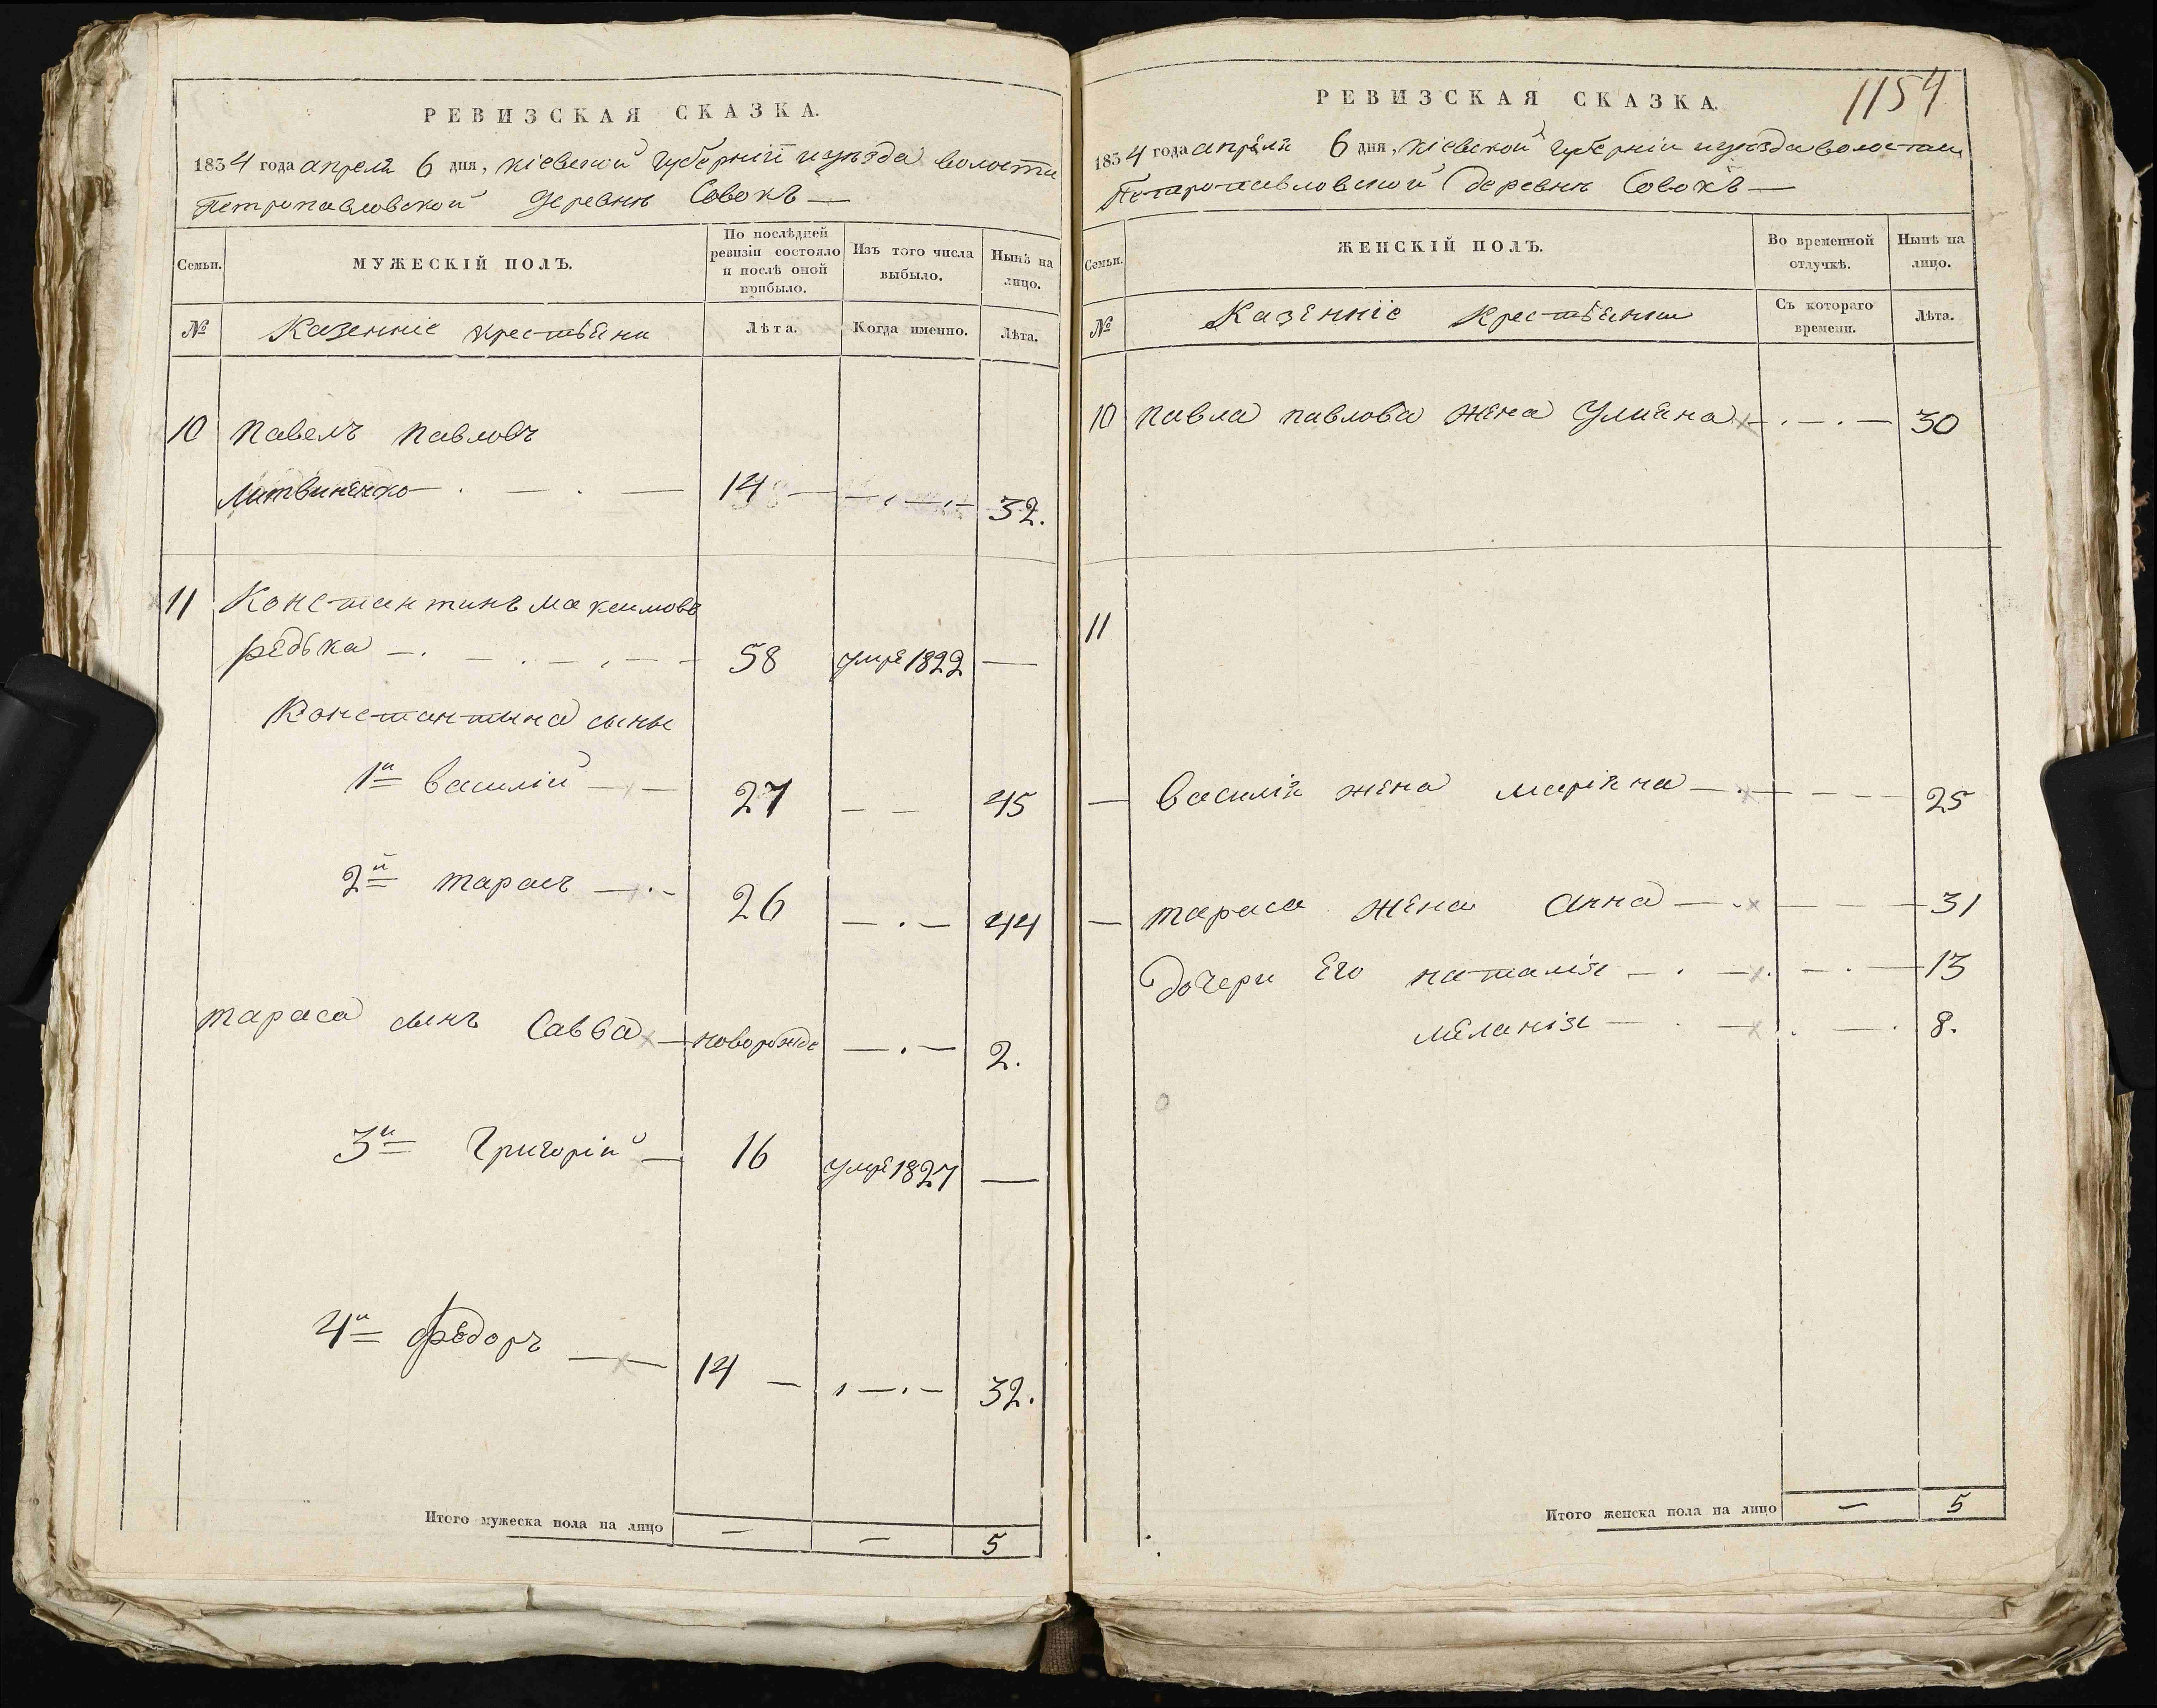 РЕВИЗСКАЯ СКАЗКА.
1834 года апреля 6 дня, Кіевской Губерніи и уезда волости
Петропавловской деревни Совокъ —
Семьи. МУЖЕСКІЙ ПОЛЪ. По послѣдней ревизіи состояло и послѣ оной прибыло. Изъ того числа выбыло. Нынѣ на лицо.
№ Казенніе крестьяни Лѣта. Когда именно. Лѣта.
10 Павелъ Павловъ
Литвиненко 14 32.
11 Константинъ Максимовъ
редька 58 умре 1822 —
Константина сыны
1й Василій 27 — — 45
2й тарасъ 26 — 44
тараса сынъ Савва новорожде — 2.
3й Григорій 16 умре 1827 —
4й Федоръ 14 — 32.
Итого мужеска пола на лицо — — 5
1154
РЕВИЗСКАЯ СКАЗКА.
1834 года апреля 6 дня, Кіевской Губерніи и уезда волости
Петропавловской деревни Совокъ —
Семьи. ЖЕНСКІЙ ПОЛЪ. Во временной отлучкѣ. Нынѣ на лицо.
№ Казенніе крестьянки Съ котораго времени. Лѣта.
10 павла павлова жена Улияна 30
11
— Василія жена Маріяна 25
— тараса жена Анна 31
дочери Его наталія 13
меланія 8.
Итого женска пола на лицо — 5